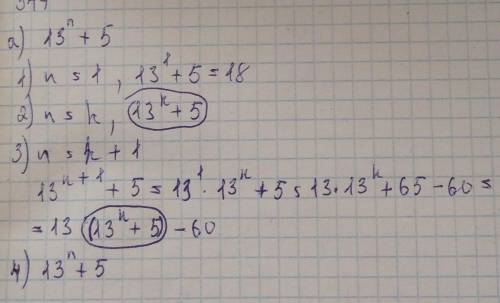 а) 13ⁿ + 5
1) n = 1, 13¹ + 5 = 18
2) n = k, 13ᵏ + 5
3) n = k + 1
13ᵏ⁺¹ + 5 = 13¹ · 13ᵏ + 5 = 13 · 13ᵏ + 65 - 60 =
= 13 (13ᵏ + 5) - 60
4) 13ⁿ + 5